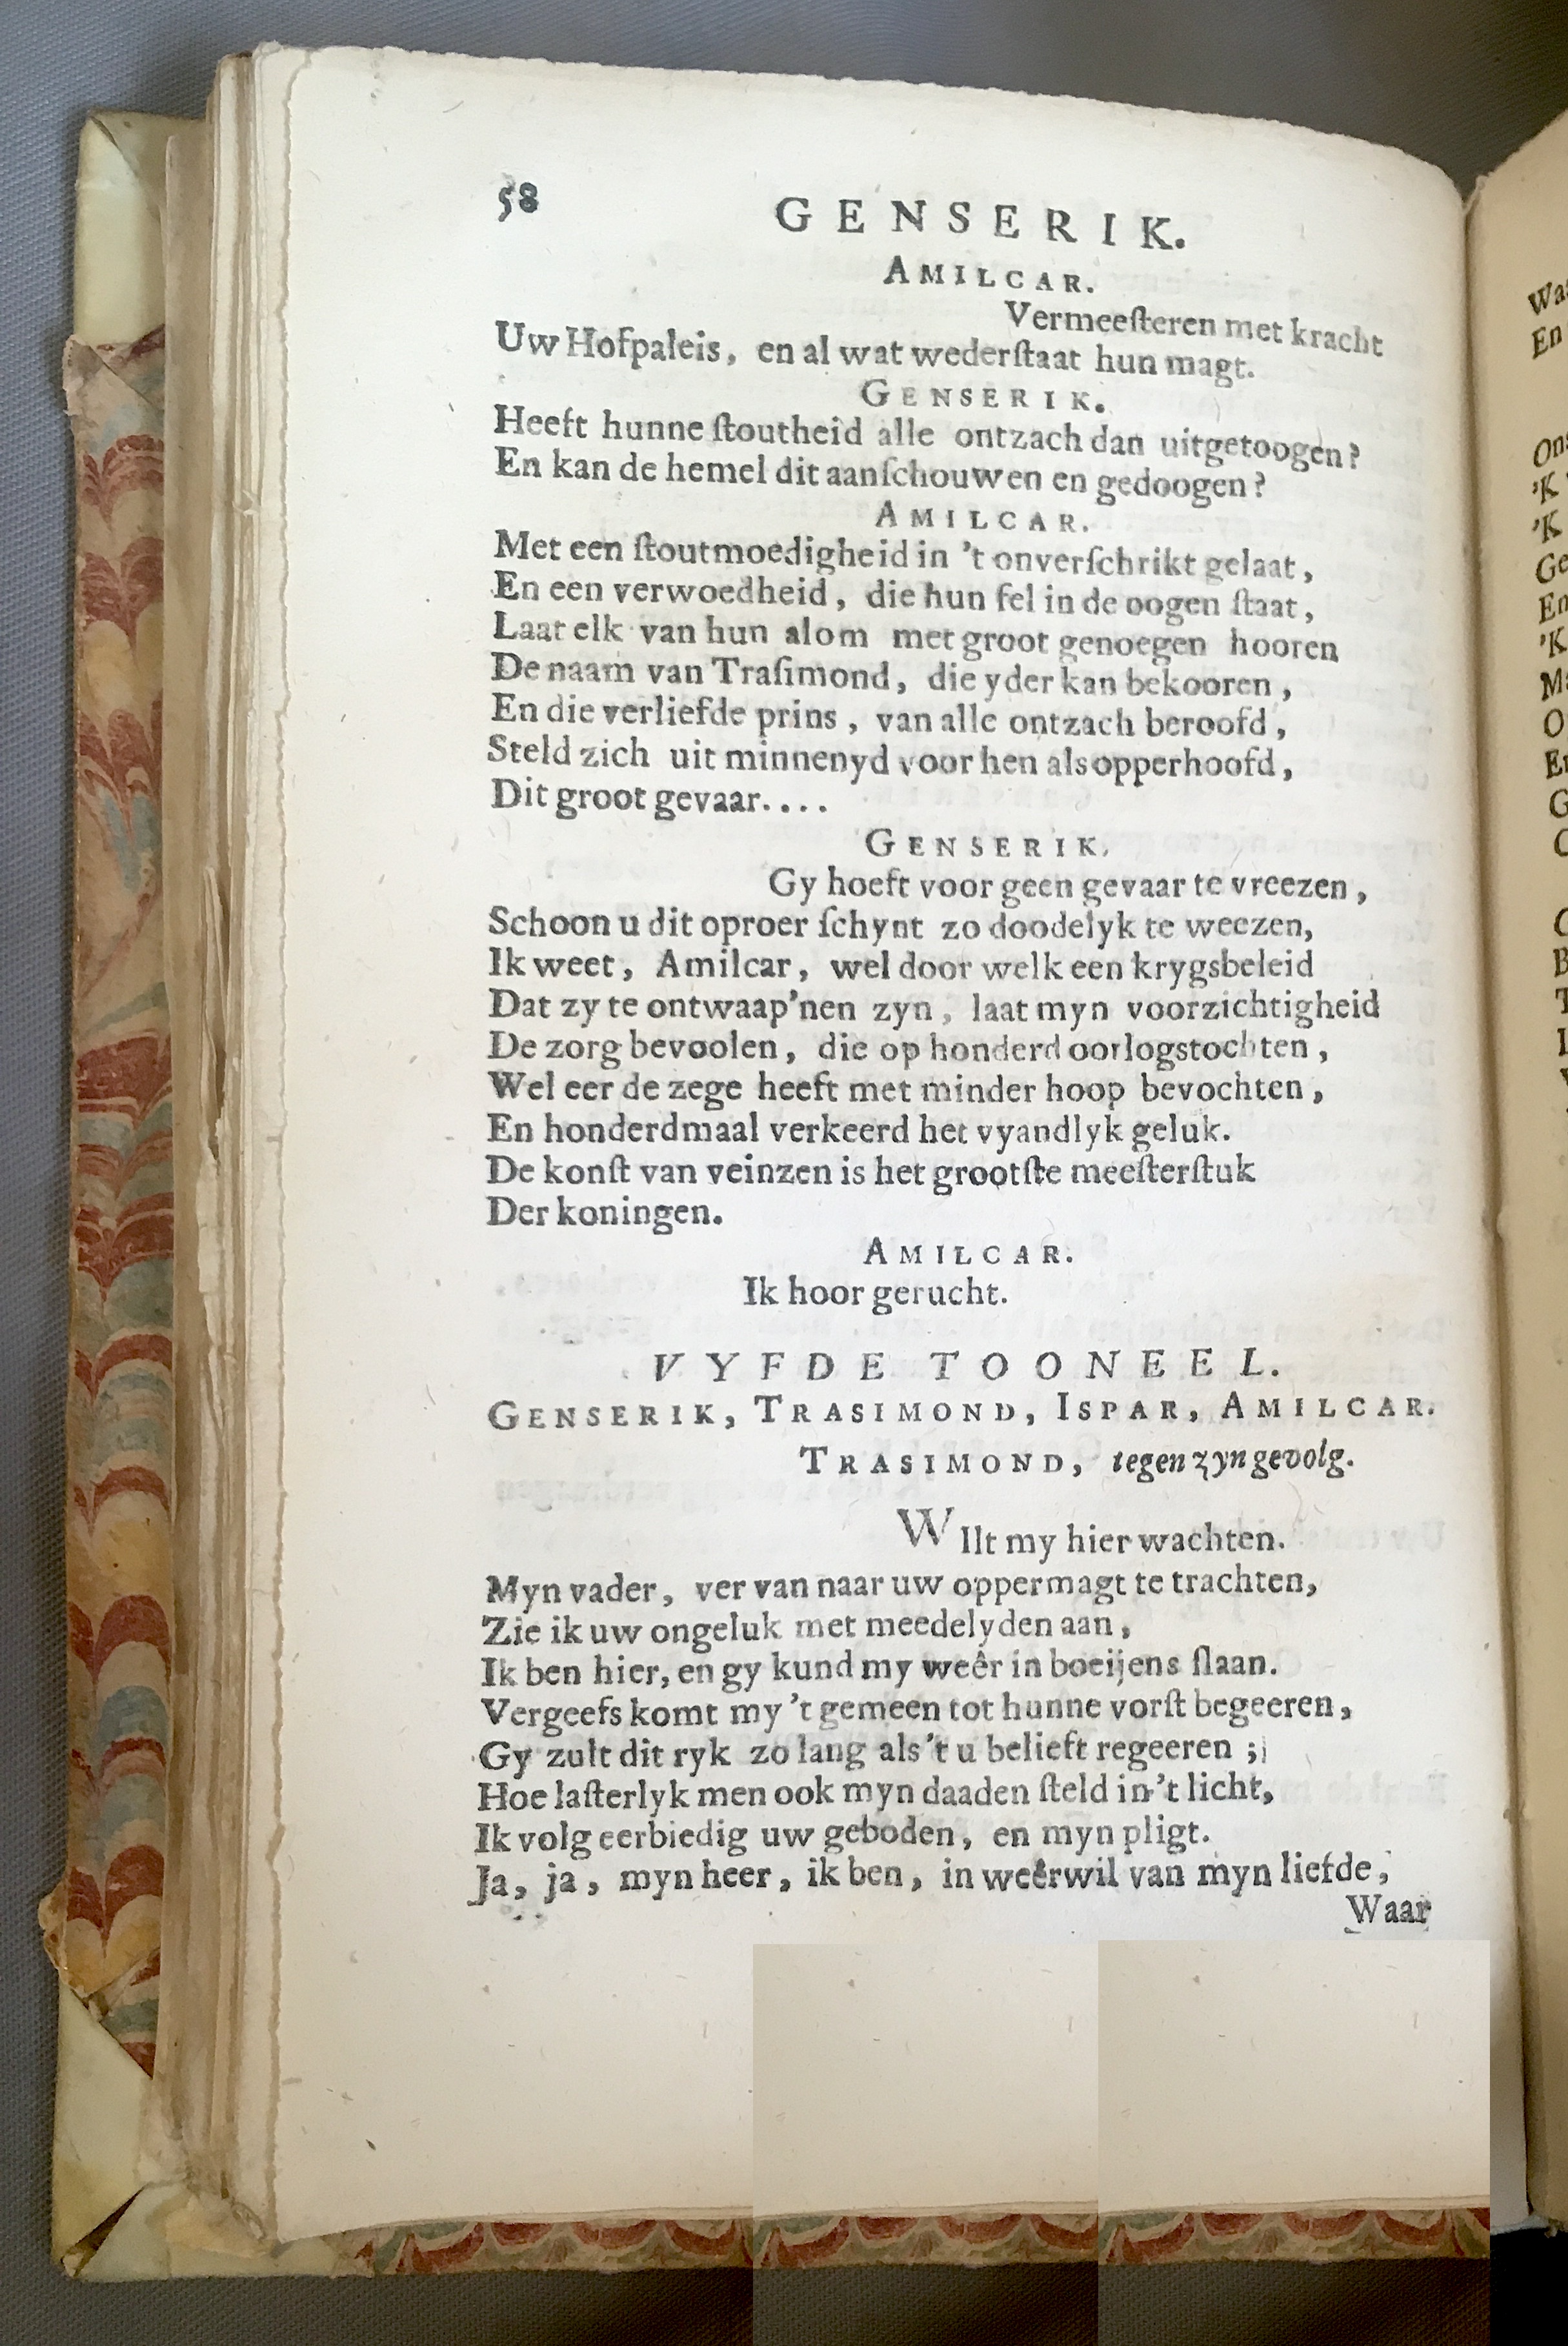 58
GENSERIK.
AMILCAR.
Vermeeſteren met kracht
Uw Hofpaleis, en al wat wederſtaat hun magt.
GENSERIK.
Heeft hunne ſtoutheid alle ontzach dan uitgetoogen?
En kan de hemel dit aanſchouwen en gedoogen?
AMILCAR.
Met een ſtoutmoedigheid in 't onverſchrikt gelaat,
En een verwoedheid, die hun fel in de oogen ſtaat,
Laat elk van hun alom met groot genoegen hooren
De naam van Traſimond, die yder kan bekooren,
En die verliefde prins, van alle ontzach beroofd,
Steld zich uit minnenyd voor hen als opperhoofd,
Dit groot gevaar....
GENSERIK.
Gy hoeft voor geen gevaar te vreezen,
Schoon u dit oproer ſchynt zo doodelyk te weezen,
Ik weet, Amilcar, wel door welk een krygsbeleid
Dat zy te ontwaap'nen zyn, laat myn voorzichtigheid
De zorg bevoolen, die op honderd oorlogstochten,
Wel eer de zege heeft met minder hoop bevochten,
En honderdmaal verkeerd het vyandlyk geluk.
De konſt van veinzen is het grootſte meeſterſtuk
Der koningen.
AMILCAR.
Ik hoor gerucht.
VYFDE TOONEEL.
GENSERIK, TRASIMOND, ISPAR, AMILCAR.
TRASIMOND, tegen zyn gevolg.
WIlt my hier wachten.
Myn vader, ver van naar uw oppermagt te trachten,
Zie ik uw ongeluk met meedelyden aan,
Ik ben hier, en gy kund my weêr in boeijens ſlaan.
Vergeefs komt my 't gemeen tot hunne vorſt begeeren,
Gy zult dit ryk zo lang als 't u belieft regeeren;
Hoe laſterlyk men ook myn daaden ſteld in 't licht,
Ik volg eerbiedig uw geboden, en myn pligt.
Ja, ja, myn heer, ik ben, in weêrwil van myn liefde,
Waar
Wa
En
On
'K
'K
Ge
En
'K
M
O
E
G
C
B
T